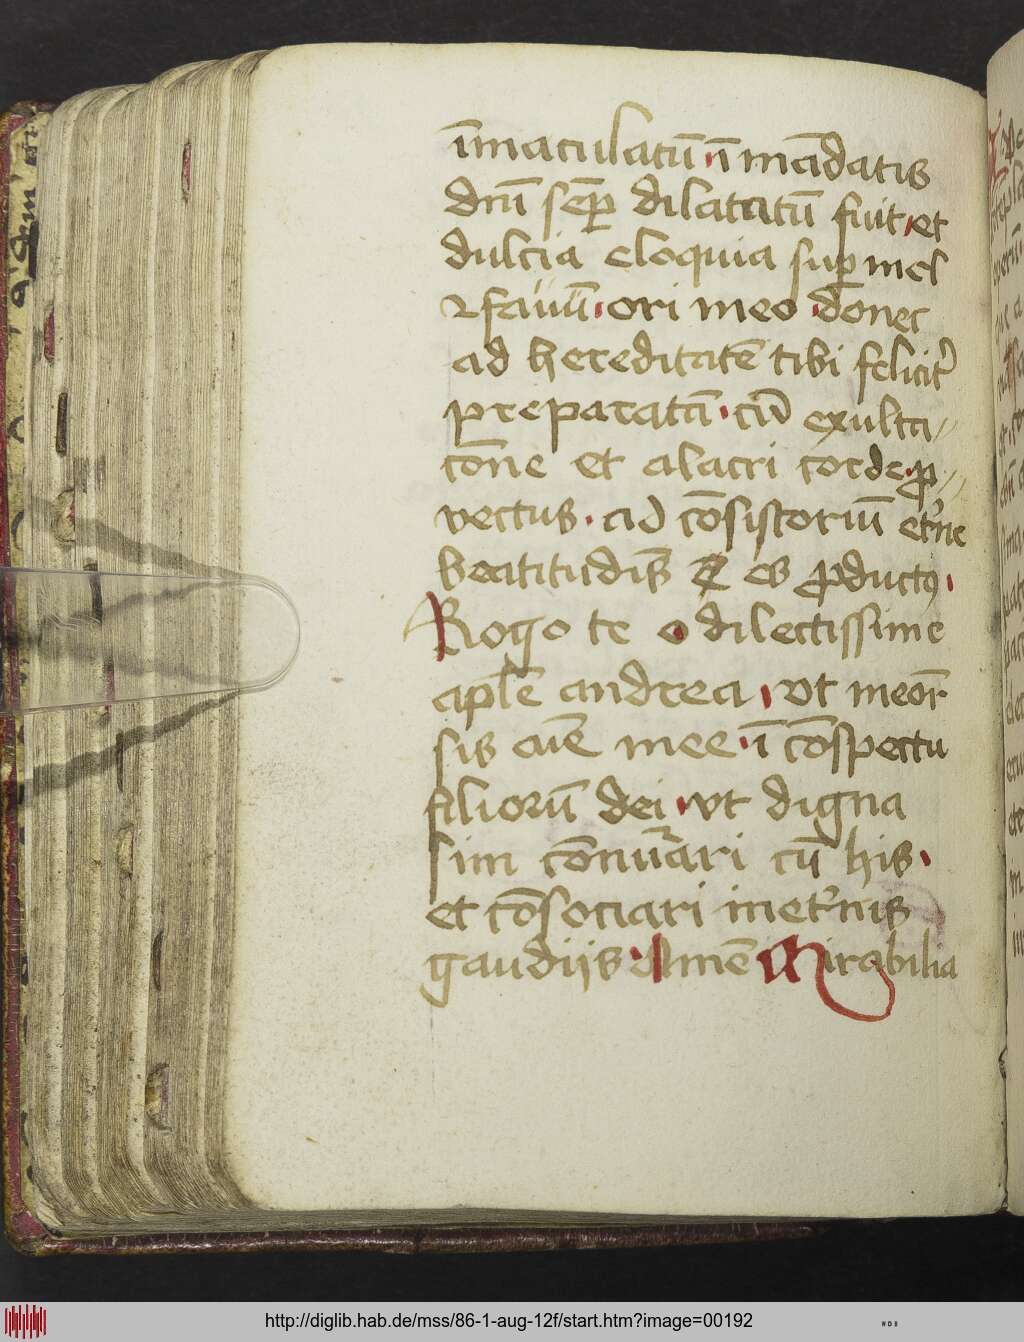 īmaculatū · ī mādatis
dñi sēꝑ dilatatū fuit · et
dulcia eloquia suꝑ mel
⁊ fauū · ori meo · donec
ad hereditatē tibi felicit͛
preparatā · cū exulta //
cōne et alacri corde · ꝓ //
vectus · ad cōsistoriū et͛ne
beatitudīs es ꝓductꝰ ·
Rogo te o dilectissime
aplē andrea · vt meor̄
sis aīe mee · ī cōspectu
filiorū dei · vt digna
sim cōnūari cū his ·
et cōsociari in et͛nis
gaudiis · Amē Mirabilia
http://diglib.hab.de/mss/86-1-aug-12f/start.htm?image=00192